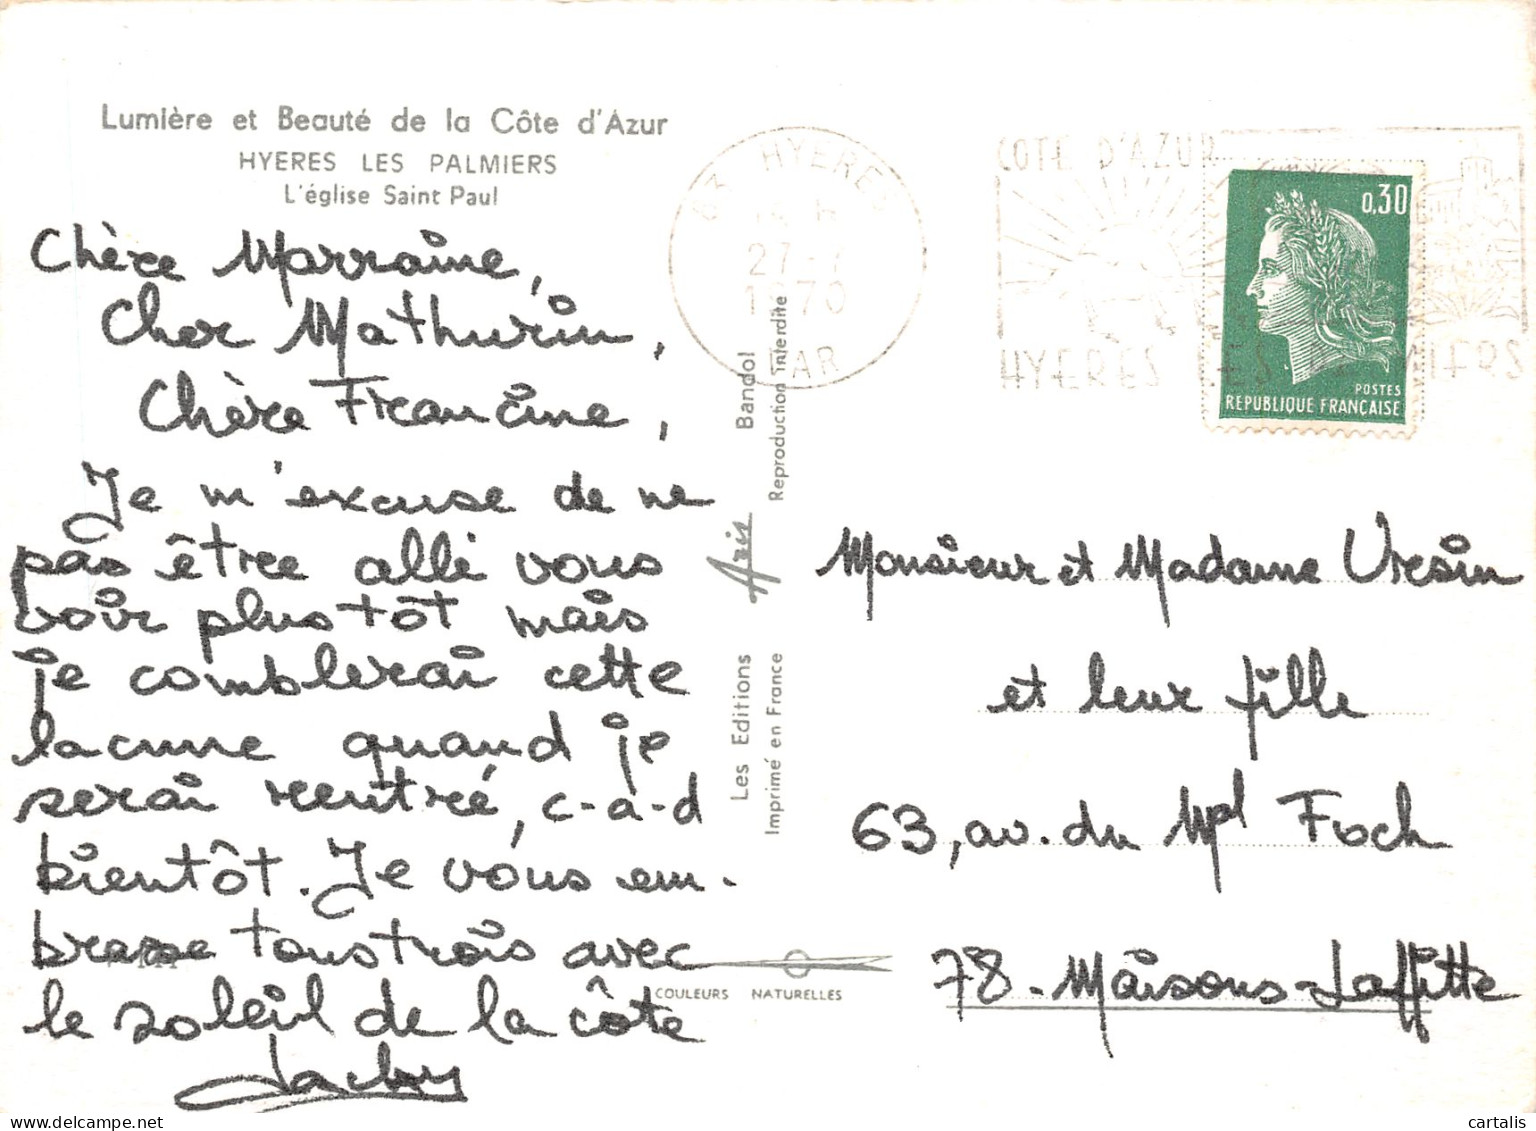 Lumière et Beauté de la Côte d'Azur
HYERES LES PALMIERS
L'église Saint Paul
Chère Marraine,
Cher Mathurin,
Chère Francine,
Je m'excuse de ne
pas être allé vous
voir plus tôt mais
je comblerai cette
lacune quand je
serai rentré, c-a-d
bientôt. Je vous em-
brasse tous trois avec
le soleil de la côte
Jacky
Les Editions Aris Bandol
Imprimé en France Reproduction interdite
COULEURS NATURELLES
83 HYERES
27-7
1970
VAR
COTE D'AZUR
HYERES LES PALMIERS
0,30
POSTES
REPUBLIQUE FRANÇAISE
Monsieur et Madame Ursin
et leur fille
63, av. du Mal Foch
78 - Maisons-Laffitte
cartalis